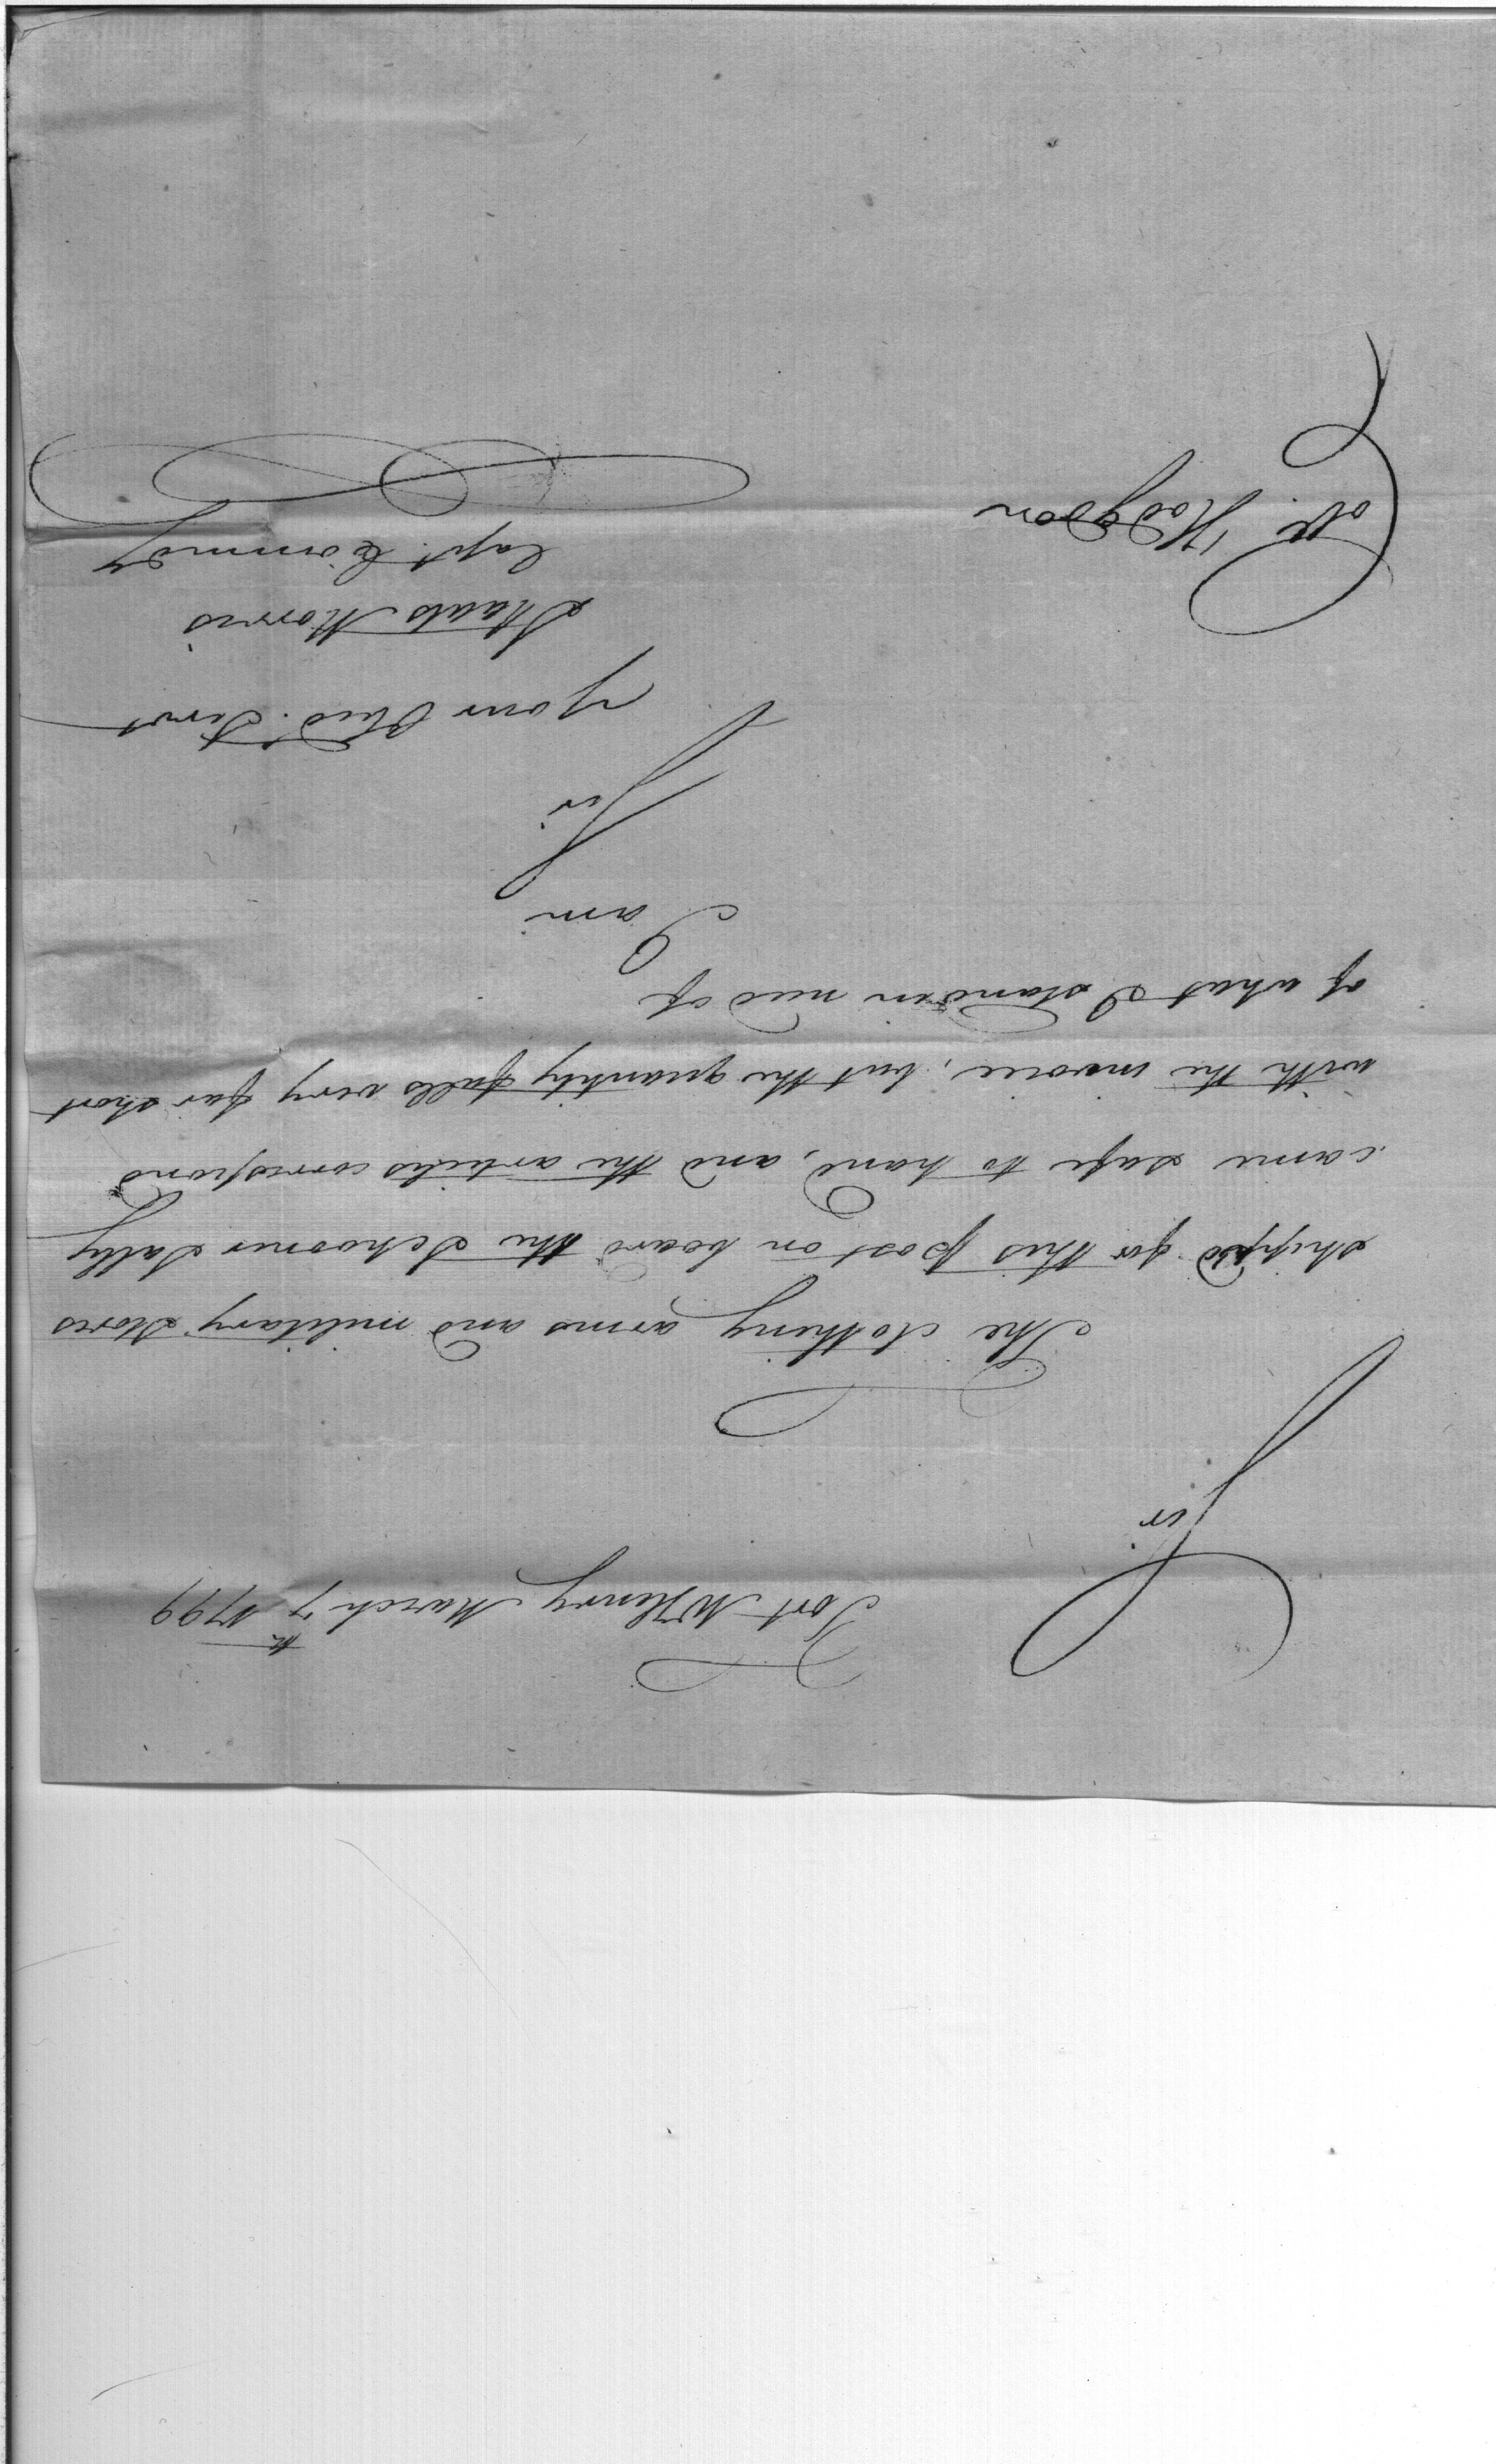 Fort McHenry March 7th 1799
Sir
The clothing arms and military stores
shipped for this post on board the Schooner Sally
came safe to hand, and the articles correspond
with the invoice, but the quantity falls very far short
of what I stand in need of
I am
Sir
your Obed. Servt
Staats Morris
Capt. Commdg
Col. Hodgdon